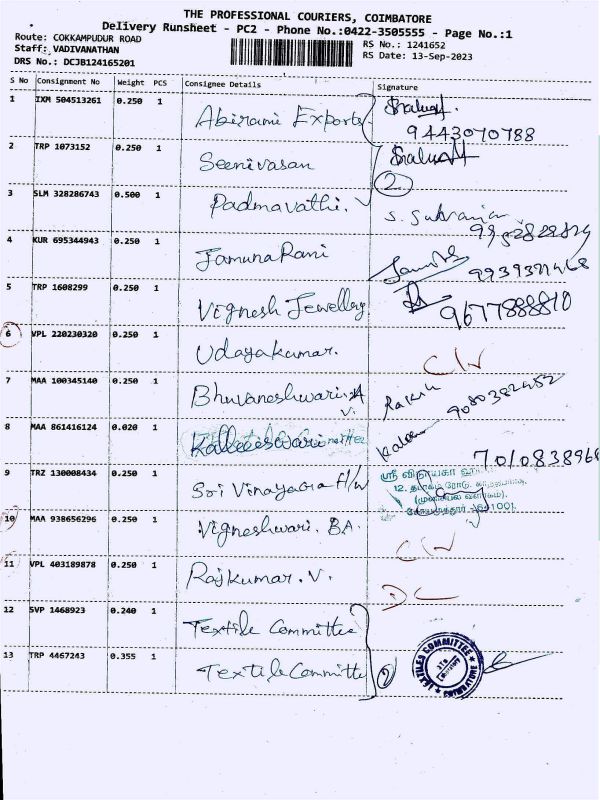 THE PROFESSIONAL COURIERS, COIMBATORE
Delivery Runsheet - PC2 - Phone No.:0422-3505555 - Page No.:1
Route: COKKAMPUDUR ROAD
Staff: VADIVANATHAN
DRS No.: DCJB124165201
RS No.: 1241652
RS Date: 13-Sep-2023
S No Consignment No Weight PCS Consignee Details Signature
1 IXM 504513261 0.250 1 Abirami Exports
9443070788
2 TRP 1073152 0.250 1 Seenivasan
2
3 SLM 328286743 0.500 1 Padmavathi.
4 KUR 695344943 0.250 1 JamunaRani
5 TRP 1608299 0.250 1 Vignesh Jewellery 9677888810
6 VPL 220230320 0.250 1 Udayakumar. C/N
7 MAA 100345140 0.250 1 Bhuvaneshwari.A
V. 9080382452
8 MAA 861416124 0.020 1 Kalleeswari
7010838968
9 TRZ 130008434 0.250 1 Sri Vinayaga H/W ஸ்ரீ விநாயகா
10 MAA 938656296 0.250 1 Vigneshwari. B.A. C/N
11 VPL 403189878 0.250 1 Rajkumar. V. DC
12 SVP 1468923 0.240 1 Textile Committee
13 TRP 4467243 0.355 1 Textile Committe 2
TEXTILES COMMITTEE
COIMBATORE